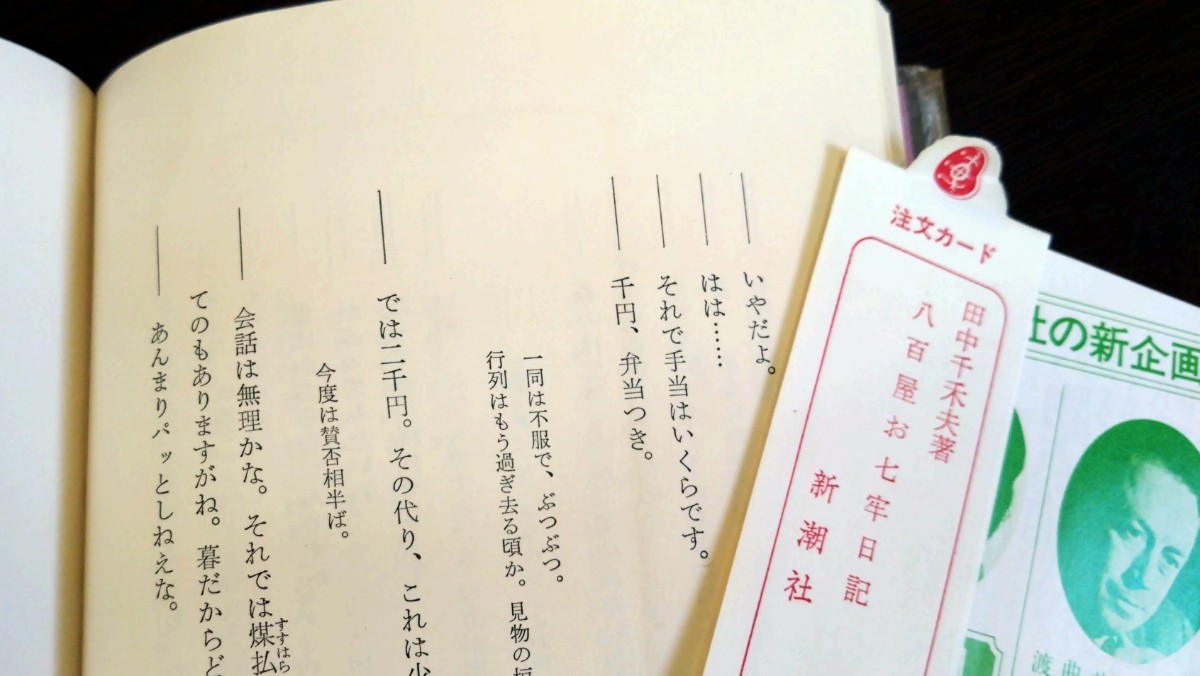 ——いやだよ。
——はは……
——それで手当はいくらです。
——千円、弁当つき。
一同は不服で、ぶつぶつ。
行列はもう過ぎ去る頃か。見物の
——では二千円。その代り、これは少
今度は賛否相半ば。
——会話は無理かな。それでは煤払
すすはら
てのもありますがね。暮だからど
——あんまりパッとしねえな。
注文カード
田中千禾夫著
八百屋お七牢日記
新潮社
社の新企画
渡